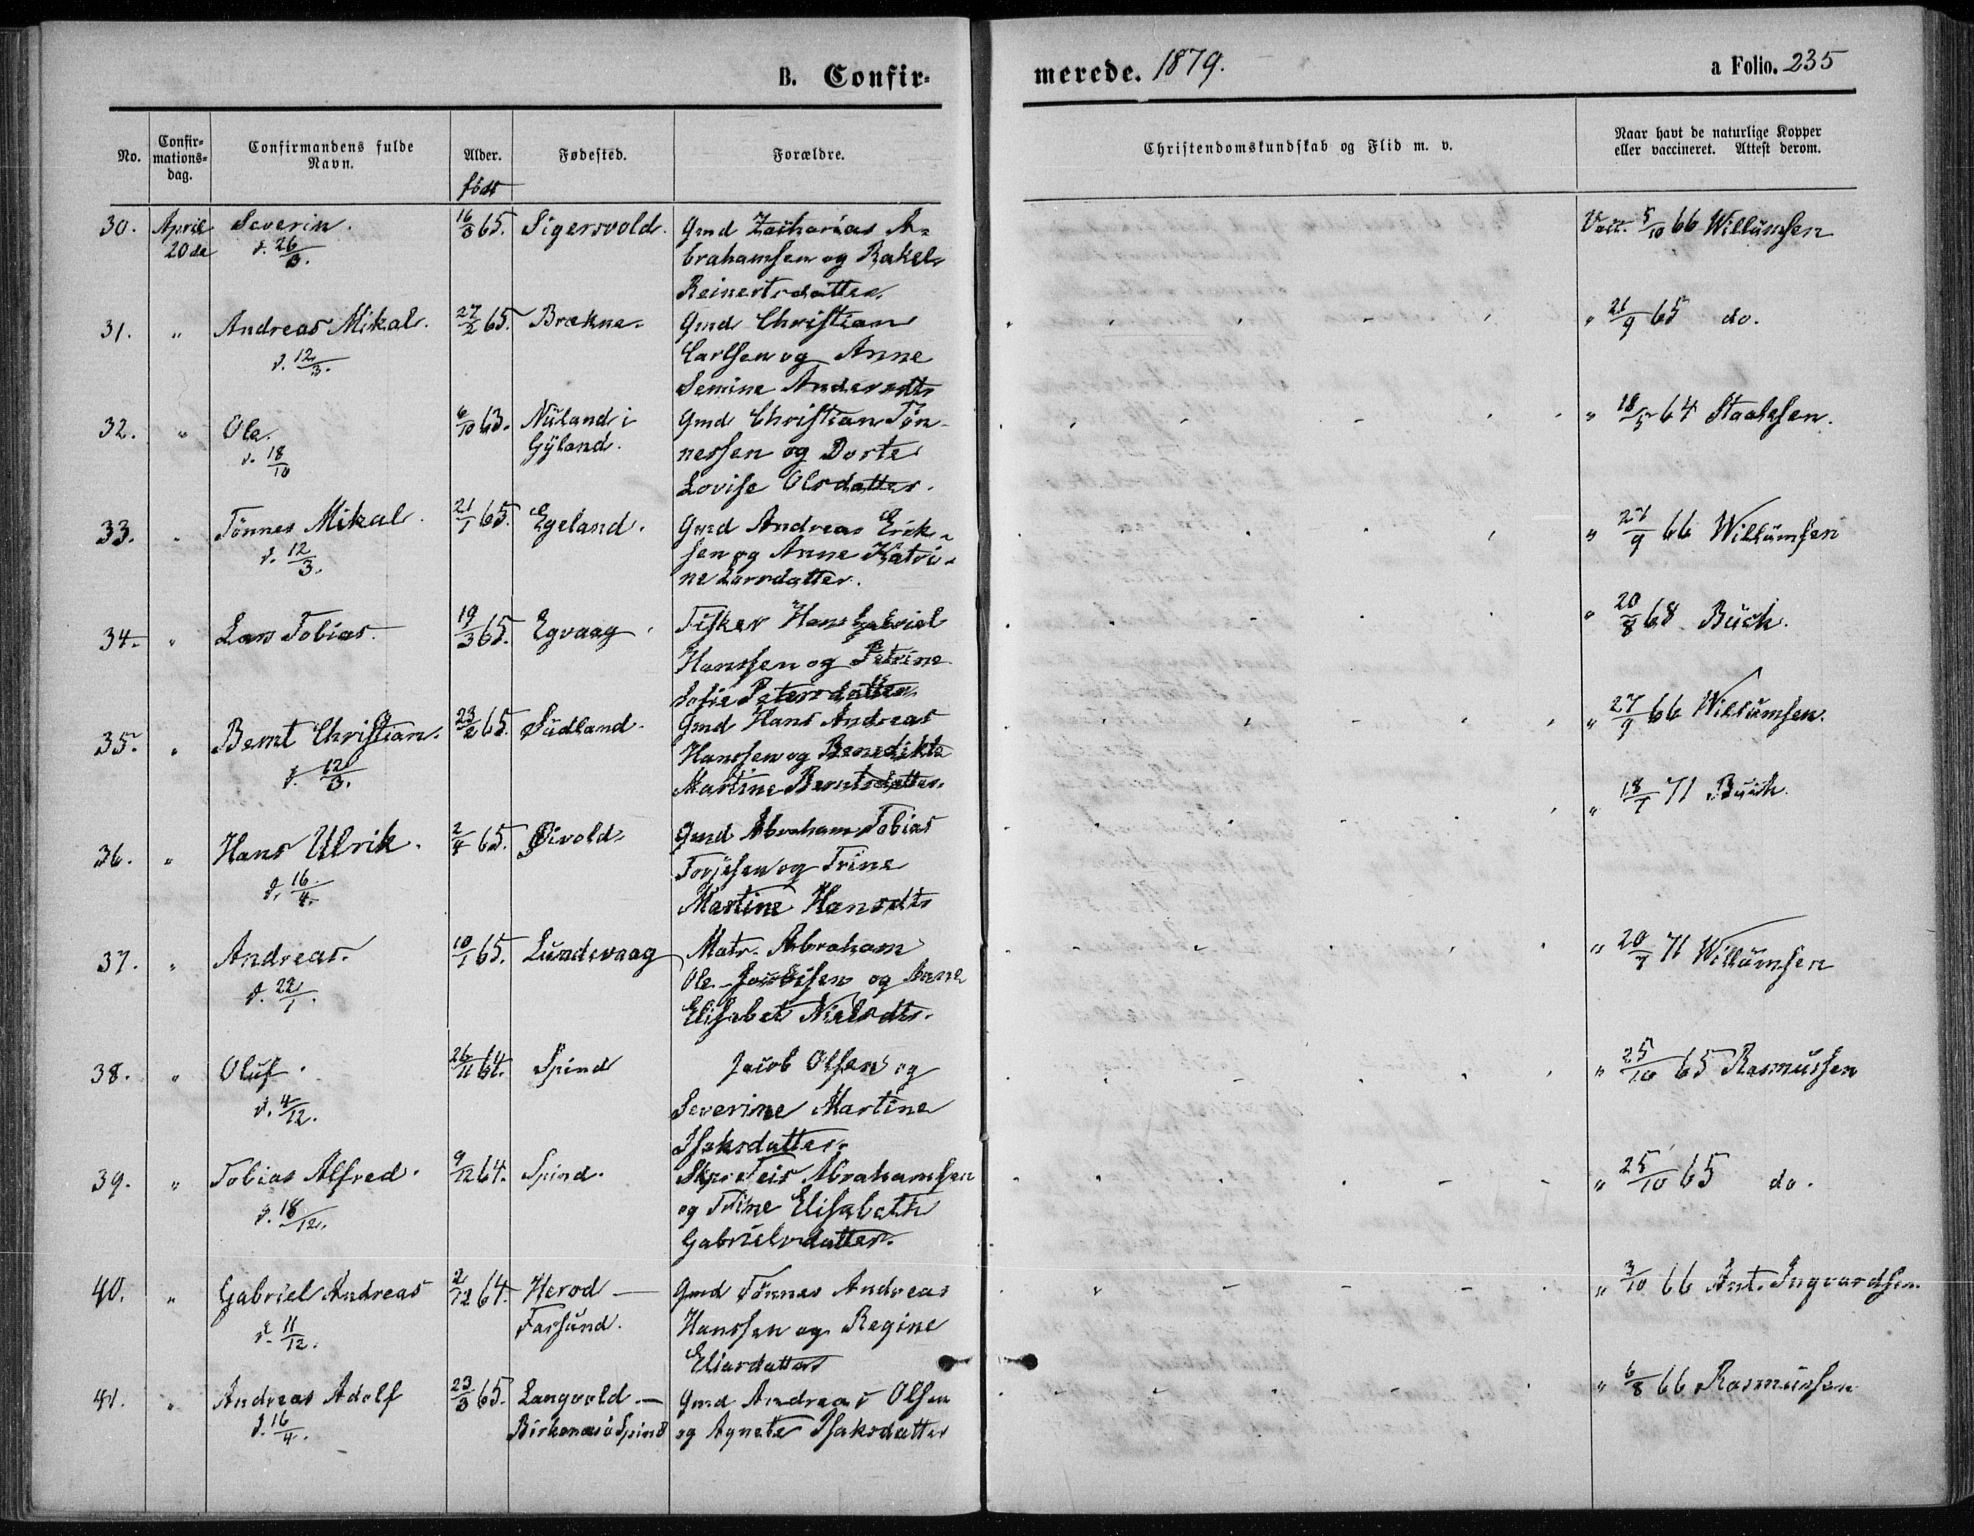 B. Confir-
merede. 1879.
a Folio. 235
No.
Confir-
mations-
dag.
Confirmandens fulde
Navn.
Alder.
født
Fødested.
Forældre.
Christendomskundskab og Flid m. v.
Naar havt de naturlige Kopper
eller vaccineret. Attest derom.
30. April Severin. 16/3 65. Sigersvold. Gmd Zacharias A-
20de d. 26/3. brahamsen og Rakel
Reinertsdatter.
Vacc. 5/10 66 Willumsen
31. " Andreas Mikal. 27/2 65. Brækne. Gmd Christian
d. 12/3. Carlsen og Anne
Semine Andersdtr
" 21/9 65 do.
32. " Ole. 6/10 63. Nuland i Gmd Christian Tøn-
d. 18/10 Gyland. nessen og Dorte
Lovise Olsdatter.
" 18/5 64 Staalesen.
33. " Tønnes Mikal. 21/1 65. Egeland. Gmd Andreas Erik-
d. 12/3. sen og Anne Katri-
ne Larsdatter.
" 27/9 66 Willumsen
34. " Lars Tobias. 19/3 65. Egvaag. Fisker Hans Gabriel
Hanssen og Petrine
Sofie Petersdatter
" 20/8 68 Buch.
35. " Bernt Christian. 23/2 65. Sudland. Gmd Hans Andreas
d. 12/3. Hanssen og Benedikte
Martine Berntsdatter.
" 27/9 66 Willumsen.
36. " Hans Ulrik. 2/4 65. Øivold. Gmd Abraham Tobias
d. 16/4. Torjesen og Trine
Martine Hansdtr
" 18/7 71 Buch.
37. " Andreas. 10/1 65. Lundevaag Matr. Abraham
d. 22/1. Ole Jacobsen og Anne
Elisabet Nielsdtr.
" 20/7 71 Willumsen
38. " Oluf. 26/11 64. Spind Jacob Olsen og
d. 4/12. Severine Martine
Isaksdatter.
" 25/10 65 Rasmussen
39. " Tobias Alfred. 9/12 64. Spind. Skpr Teis Abrahamsen
d. 18/12. og Trine Elisabeth
Gabrielsdatter.
" 25/10 65 do.
40. " Gabriel Andreas 2/12 64. Herod — Gmd Tønnes Andreas
d. 11/12. Farsund. Hanssen og Regine
Eliasdatter
" 3/10 66 Ant. Ingvardsen.
41. " Andreas Adolf 23/3 65. Langvold — Gmd Andreas Olsen
d. 16/4. Birkenæs i Spind og Agnete Isaksdatter
" 6/8 66 Rasmussen